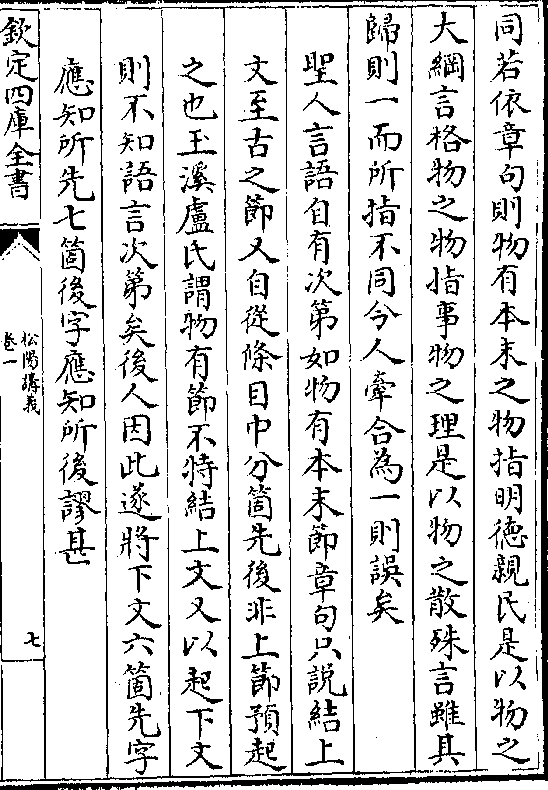 同若依章句則物有本末之物指明德親民是以物之
大綱言格物之物指事物之理是以物之散殊言雖其
歸則一而所指不同今人牽合為一則誤矣
聖人言語自有次第如物有本末節章句只說結上
文至古之節又自從條目中分箇先後非上節預起
之也玉溪盧氏謂物有節不特結上文又以起下文
則不知語言次第矣後人因此遂將下文六箇先字
應知所先七箇後字應知所後謬甚
欽定四庫全書
松陽講義
卷一
七